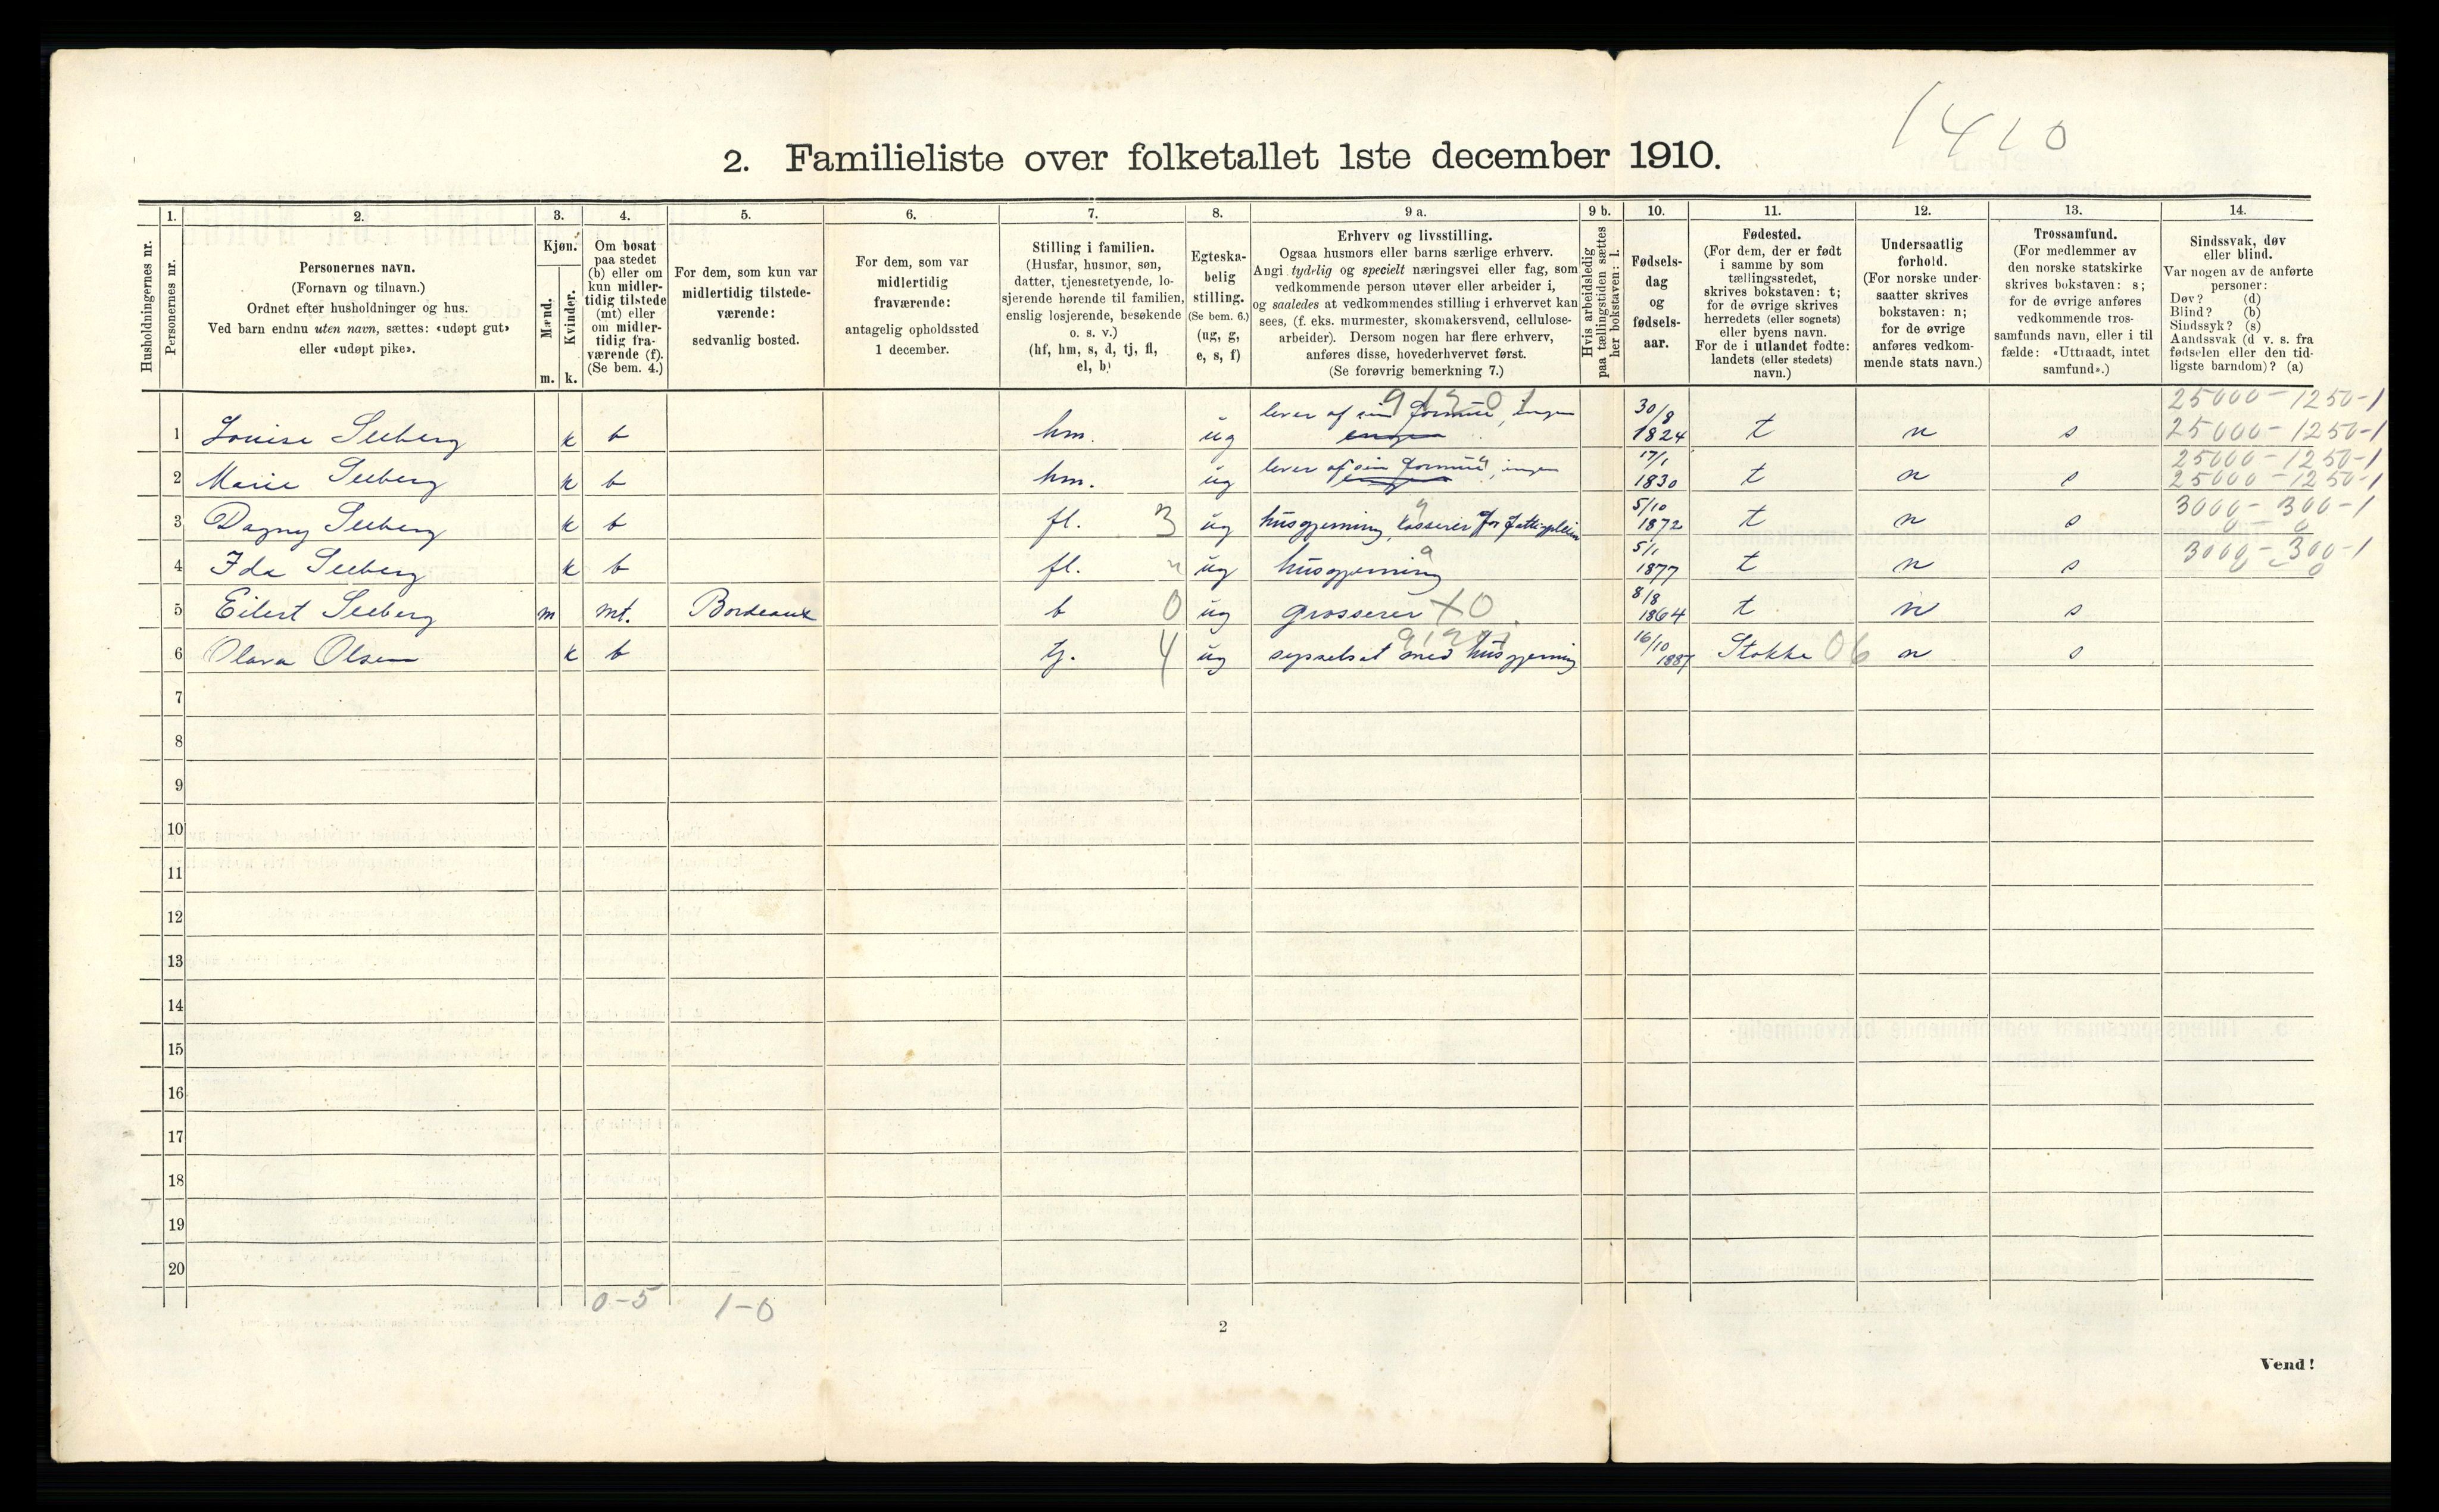 1410
2. Familieliste over folketallet 1ste december 1910.
1. 2. 3. 4. 5. 6. 7. 8. 9 a. 9 b. 10. 11. 12. 13. 14.
Husholdningernes nr.
Personernes nr.
Personernes navn.
(Fornavn og tilnavn.)
Ordnet efter husholdninger og hus.
Ved barn endnu uten navn, sættes: «udøpt gut»
eller «udøpt pike».
Kjøn.
Mænd.
Kvinder.
m. k.
Om bosat
paa stedet
(b) eller om
kun midler-
tidig tilstede
(mt) eller
om midler-
tidig fra-
værende (f).
(Se bem. 4.)
For dem, som kun var
midlertidig tilstede-
værende:
sedvanlig bosted.
For dem, som var
midlertidig
fraværende:
antagelig opholdssted
1 december.
Stilling i familien.
(Husfar, husmor, søn,
datter, tjenestetyende, lo-
sjerende hørende til familien,
enslig losjerende, besøkende
o. s. v.)
(hf, hm, s, d, tj, fl,
el, b)
Egteska-
belig
stilling.
(Se bem. 6.)
(ug, g,
e, s, f)
Erhverv og livsstilling.
Ogsaa husmors eller barns særlige erhverv.
Angi tydelig og specielt næringsvei eller fag, som
vedkommende person utøver eller arbeider i,
og saaledes at vedkommendes stilling i erhvervet kan
sees, (f. eks. murmester, skomakersvend, cellulose-
arbeider). Dersom nogen har flere erhverv,
anføres disse, hovederhvervet først.
(Se forøvrig bemerkning 7.)
Hvis arbeidsledig
paa tællingstiden sættes
her bokstaven: l.
Fødsels-
dag
og
fødsels-
aar.
Fødested.
(For dem, der er født
i samme by som
tællingsstedet,
skrives bokstaven: t;
for de øvrige skrives
herredets (eller sognets)
eller byens navn.
For de i utlandet fødte:
landets (eller stedets)
navn.)
Undersaatlig
forhold.
(For norske under-
saatter skrives
bokstaven: n;
for de øvrige
anføres vedkom-
mende stats navn.)
Trossamfund.
(For medlemmer av
den norske statskirke
skrives bokstaven: s;
for de øvrige anføres
vedkommende tros-
samfunds navn, eller i til
fælde: «Uttraadt, intet
samfund».)
Sindssvak, døv
eller blind.
Var nogen av de anførte
personer:
Døv? (d)
Blind? (b)
Sindssyk? (s)
Aandssvak (d v. s. fra
fødselen eller den tid-
ligste barndom)? (a)
lever af sin formue, ingen 30/8 25000 - 1250-1
1 Louise Seeberg k b hm. ug 1824 t n s 25000 - 1250-1
lever af sin formue, ingen 17/1 25000 - 1250-1
2 Marie Seeberg k b hm. ug 1830 t n s 25000 - 1250-1
5/10 3000 - 300-1
3 Dagny Seeberg k b fl. 3 ug husgjerning, kasserer for 1872 t n s 0 - 0
5/1 3000 - 300-1
4 Ida Seeberg k b fl. " ug husgjerning 1877 t n s 0 - 0
8/8
5 Eilert Seeberg m mt. Bordeaux b 0 ug grosserer X0 1864 t n s
16/10
6 Olava Olsen k b tj. 4 ug sysselsat med husgjerning 1887 Stokke 06 n s
7
8
9
10
11
12
13
14
15
16
17
18
19
20
0-5 1-0
2
Vend!